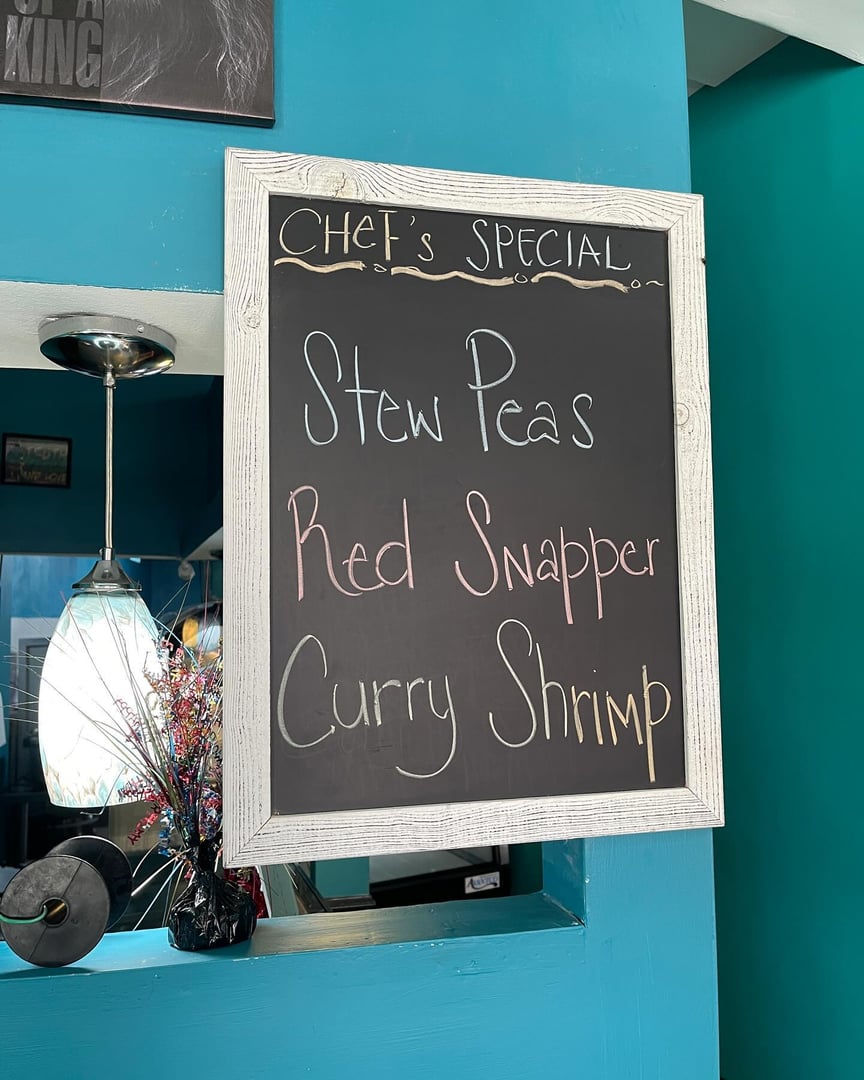 OF A
KING
CHEF's SPECIAL
Stew Peas
Red Snapper
Curry Shrimp